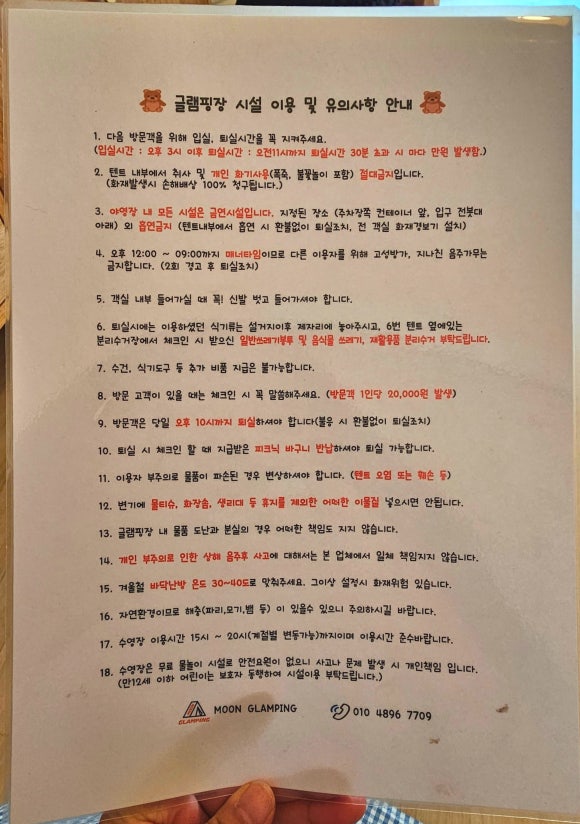 글램핑장 시설 이용 및 유의사항 안내
1. 다음 방문객을 위해 입실, 퇴실시간을 꼭 지켜주세요.
(입실시간 : 오후 3시 이후 퇴실시간 : 오전11시까지 퇴실시간 30분 초과 시 마다 만원 발생함.)
2. 텐트 내부에서 취사 및 개인 화기사용(폭죽, 불꽃놀이 포함) 절대금지입니다.
(화재발생시 손해배상 100% 청구됩니다.)
3. 야영장 내 모든 시설은 금연시설입니다. 지정된 장소 (주차장쪽 컨테이너 앞, 입구 전봇대
아래) 외 흡연금지 (텐트내부에서 흡연 시 환불없이 퇴실조치, 전 객실 화재경보기 설치)
4. 오후 12:00 ~ 09:00까지 매너타임이므로 다른 이용자를 위해 고성방가, 지나친 음주가무는
금지합니다. (2회 경고 후 퇴실조치)
5. 객실 내부 들어가실 때 꼭! 신발 벗고 들어가셔야 합니다.
6. 퇴실시에는 이용하셨던 식기류는 설거지이후 제자리에 놓아주시고, 6번 텐트 옆에있는
분리수거장에서 체크인 시 받으신 일반쓰레기봉투 및 음식물 쓰레기, 재활용품 분리수거 부탁드립니다.
7. 수건, 식기도구 등 추가 비품 지급은 불가능합니다.
8. 방문 고객이 있을 때는 체크인 시 꼭 말씀해주세요. (방문객 1인당 20,000원 발생)
9. 방문객은 당일 오후 10시까지 퇴실하셔야 합니다(불응 시 환불없이 퇴실조치)
10. 퇴실 시 체크인 할 때 지급받은 피크닉 바구니 반납하셔야 퇴실 가능합니다.
11. 이용자 부주의로 물품이 파손된 경우 변상하셔야 합니다. (텐트 오염 또는 훼손 등)
12. 변기에 물티슈, 화장솜, 생리대 등 휴지를 제외한 어떠한 이물질 넣으시면 안됩니다.
13. 글램핑장 내 물품 도난과 분실의 경우 어떠한 책임도 지지 않습니다.
14. 개인 부주의로 인한 상해 음주후 사고에 대해서는 본 업체에서 일체 책임지지 않습니다.
15. 겨울철 바닥난방 온도 30~40도로 맞춰주세요. 그이상 설정시 화재위험 있습니다.
16. 자연환경이므로 해충(파리,모기,뱀 등) 이 있을수 있으니 주의하시길 바랍니다.
17. 수영장 이용시간 15시 ~ 20시(계절별 변동가능)까지이며 이용시간 준수바랍니다.
18. 수영장은 무료 물놀이 시설로 안전요원이 없으니 사고나 문제 발생 시 개인책임 입니다.
(만12세 이하 어린이는 보호자 동행하여 시설이용 부탁드립니다.)
GLAMPING MOON GLAMPING 010 4896 7709